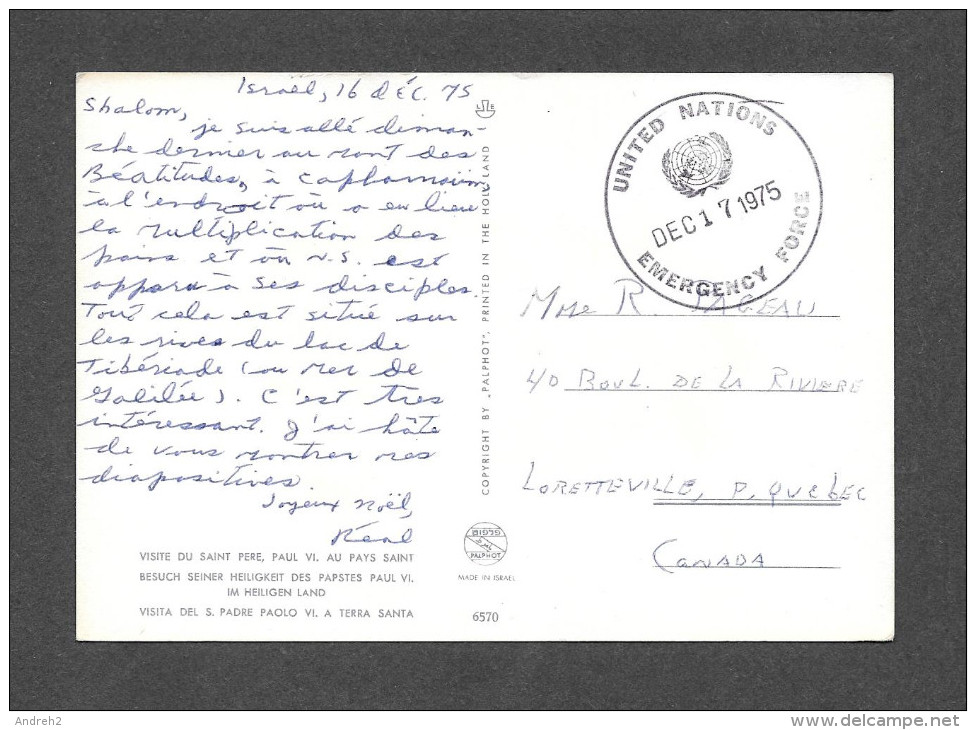 Israël, 16 déc. 75
Shalom,
je suis allé diman-
che dernier au mont des
Béatitudes, à Capharnaüm,
à l'endroit où a eu lieu
la multiplication des
pains et où N.S. est
apparu à ses disciples.
Tout cela est situé sur
les rives du lac de
Tibériade (ou Mer de
Galilée). C'est très
intéressant. J'ai hâte
de vous montrer mes
diapositives.
Joyeux Noël,
Réal
VISITE DU SAINT PERE, PAUL VI. AU PAYS SAINT
BESUCH SEINER HEILIGKEIT DES PAPSTES PAUL VI.
IM HEILIGEN LAND
VISITA DEL S. PADRE PAOLO VI. A TERRA SANTA
COPYRIGHT BY „PALPHOT", PRINTED IN THE HOLY LAND
PALPHOT
MADE IN ISRAEL
6570
UNITED NATIONS
DEC 17 1975
EMERGENCY FORCE
Mme R. PAGEAU
40 BOUL. DE LA RIVIERE
LORETTEVILLE, P. QUEBEC
CANADA
Andreh2
www.delcampe.net